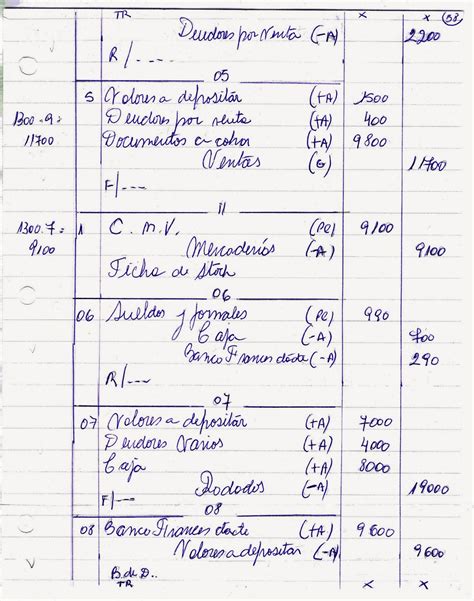 TR X X 53
Deudores por Venta (-A) 2200
R/----
05
5 Valores a depositar (+A) 1500
1300.9= Deudores por venta (+A) 400
11700 Documentos a cobrar (+A) 9800
Ventas (G) 11700
F/---
11
1300.7= 1 C.M.V. (Pe) 9100
9100 Mercaderías (-A) 9100
Ficha de Stock
06
06 Sueldos y jornales (Pe) 990
Caja (-A) 700
Banco Frances c/cte (-A) 290
R/---
07
07 Valores a depositar (+A) 7000
Deudores Varios (+A) 4000
Caja (+A) 8000
Rodados (-A) 19000
F/---
08
08 Banco Frances c/cte (+A) 9600
Valores a depositar (-A) 9600
B. de D..
TR X X